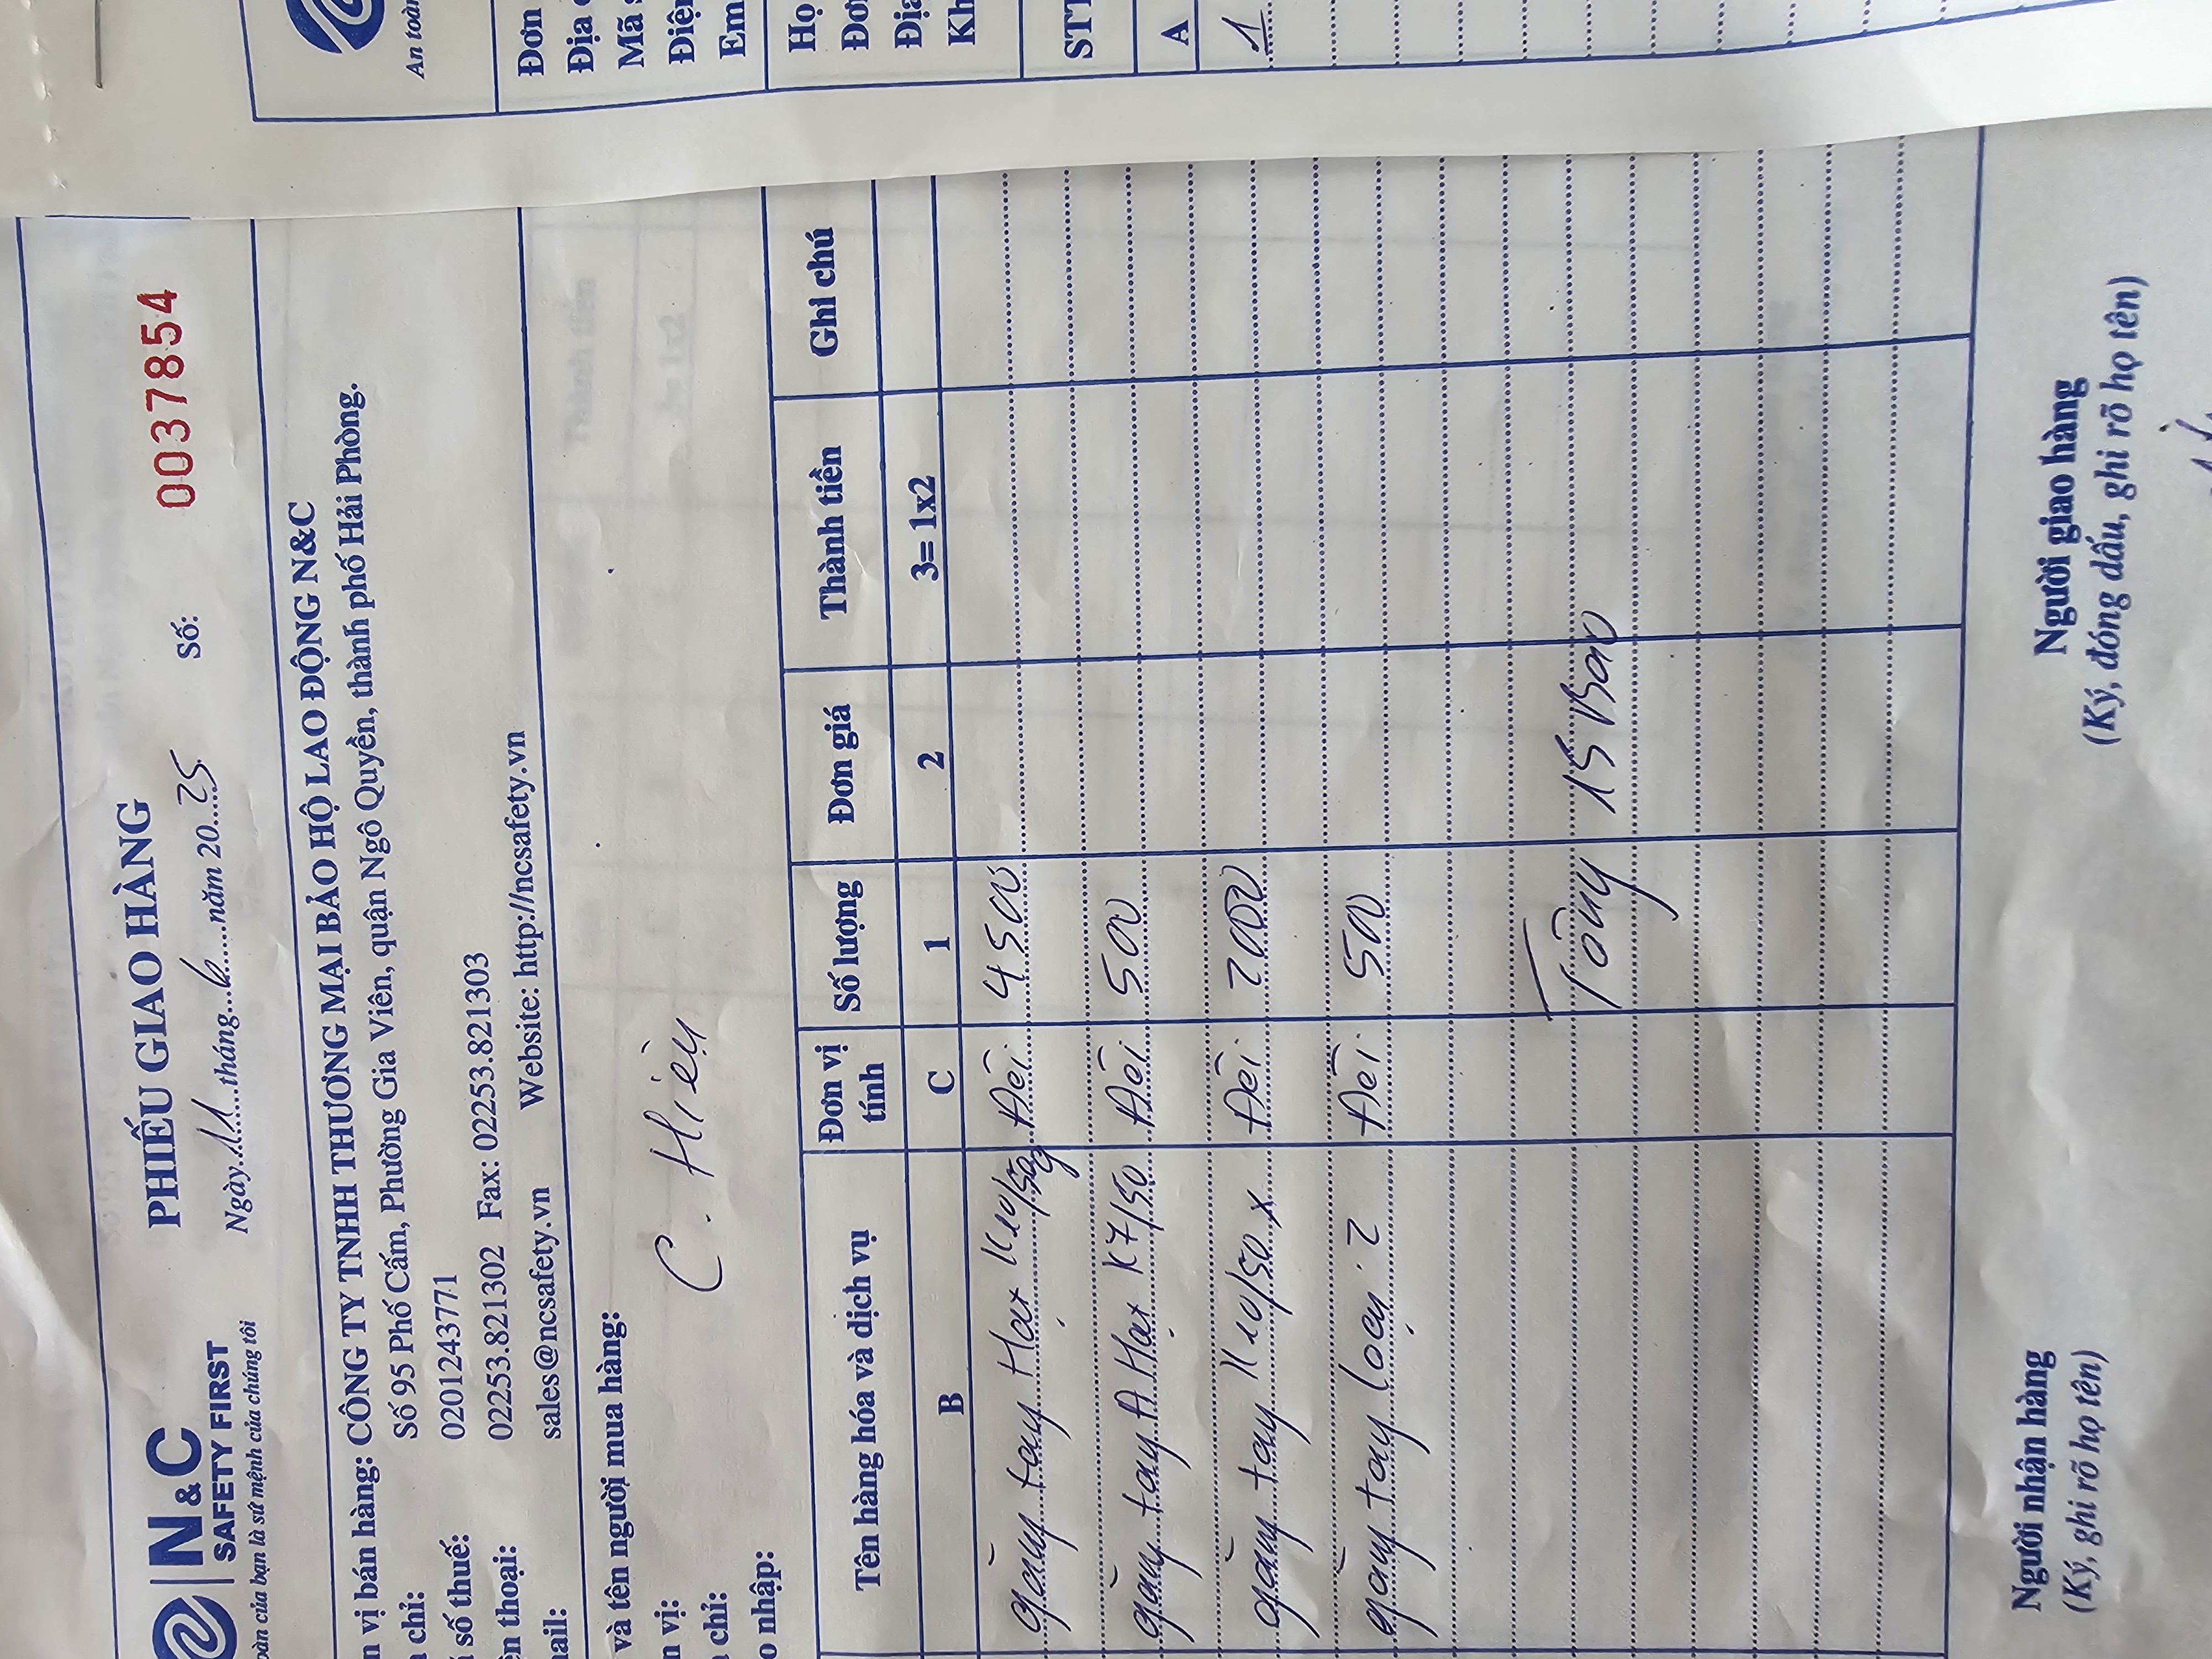 N&C
SAFETY FIRST
toàn của bạn là sứ mệnh của chúng tôi
PHIẾU GIAO HÀNG
Ngày 11 tháng 6 năm 2025
Số: 0037854
n vị bán hàng: CÔNG TY TNHH THƯƠNG MẠI BẢO HỘ LAO ĐỘNG N&C
chỉ: Số 95 Phố Cấm, Phường Gia Viên, quận Ngô Quyền, thành phố Hải Phòng.
số thuế: 0201243771
n thoại: 02253.821302 Fax: 02253.821303
mail: sales@ncsafety.vn Website: http://ncsafety.vn
và tên người mua hàng:
C. Hiền
n vị:
chỉ:
o nhập:
Tên hàng hóa và dịch vụ Đơn vị tính Số lượng Đơn giá Thành tiền Ghi chú
B C 1 2 3= 1x2
găng tay Hạt K10/50g Đôi 4500
găng tay A Hạt K7/50 Đôi 500
găng tay K10/50 x Đôi 2000
găng tay loại 2 Đôi 500
Tổng 15 Bao
Người nhận hàng
(Ký, ghi rõ họ tên)
Người giao hàng
(Ký, đóng dấu, ghi rõ họ tên)
An toàn
Đơn
Địa
Mã
Điện
Em
Họ
Đơn
Địa
Kh
STT
A
1